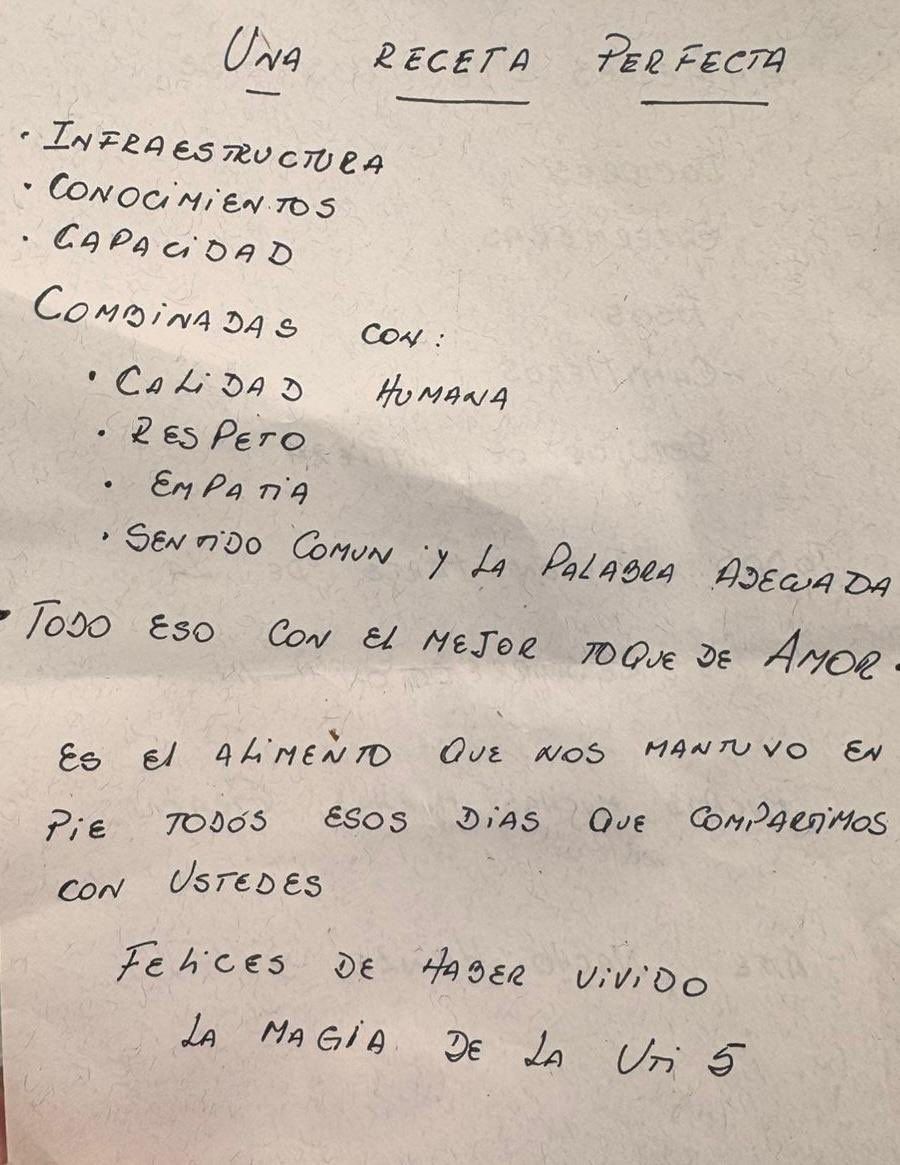 UNA RECETA PERFECTA
· INFRAESTRUCTURA
· CONOCIMIENTOS
· CAPACIDAD
COMBINADAS CON:
· CALIDAD HUMANA
· RESPETO
· EMPATIA
· SENTIDO COMUN Y LA PALABRA ADECUADA
· TODO ESO CON EL MEJOR TOQUE DE AMOR.
ES EL ALIMENTO QUE NOS MANTUVO EN
PIE TODOS ESOS DIAS QUE COMPARTIMOS
CON USTEDES
FELICES DE HABER VIVIDO
LA MAGIA DE LA UTI 5